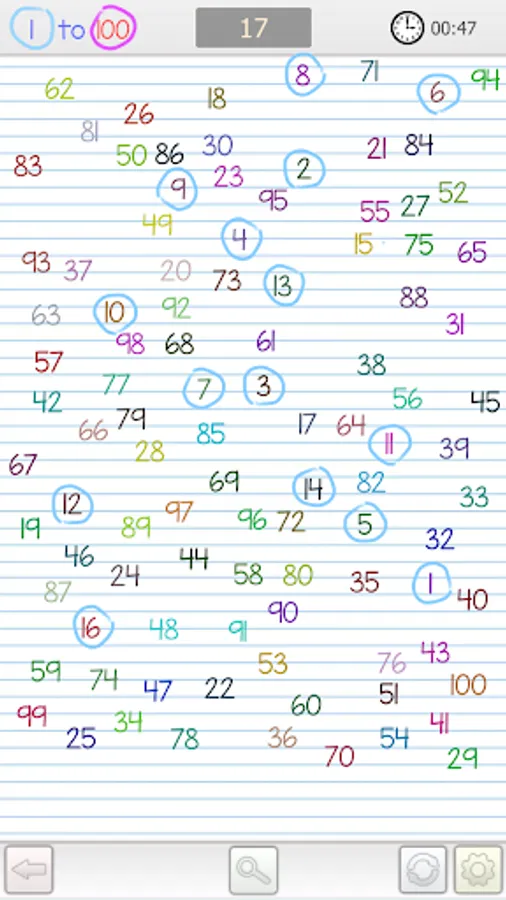 1 to 100 17 00:47
8 71 94
62 18 6
26
81
83 50 86 30 2 21 84
9 23 95 52
49 55 27
4 15 75 65
93 37 20 73 13
63 10 92 88
98 68 61 31
57 77 7 3 38
42 79 56 45
66 28 85 17 64 11 39
67 69 14 82 33
12 97
19 89 96 72 5 32
46 44
87 24 58 80 35 1 40
16 48 91 90
59 74 53 76 43
47 22 51 100
99 34 60 41
25 78 36 70 54 29